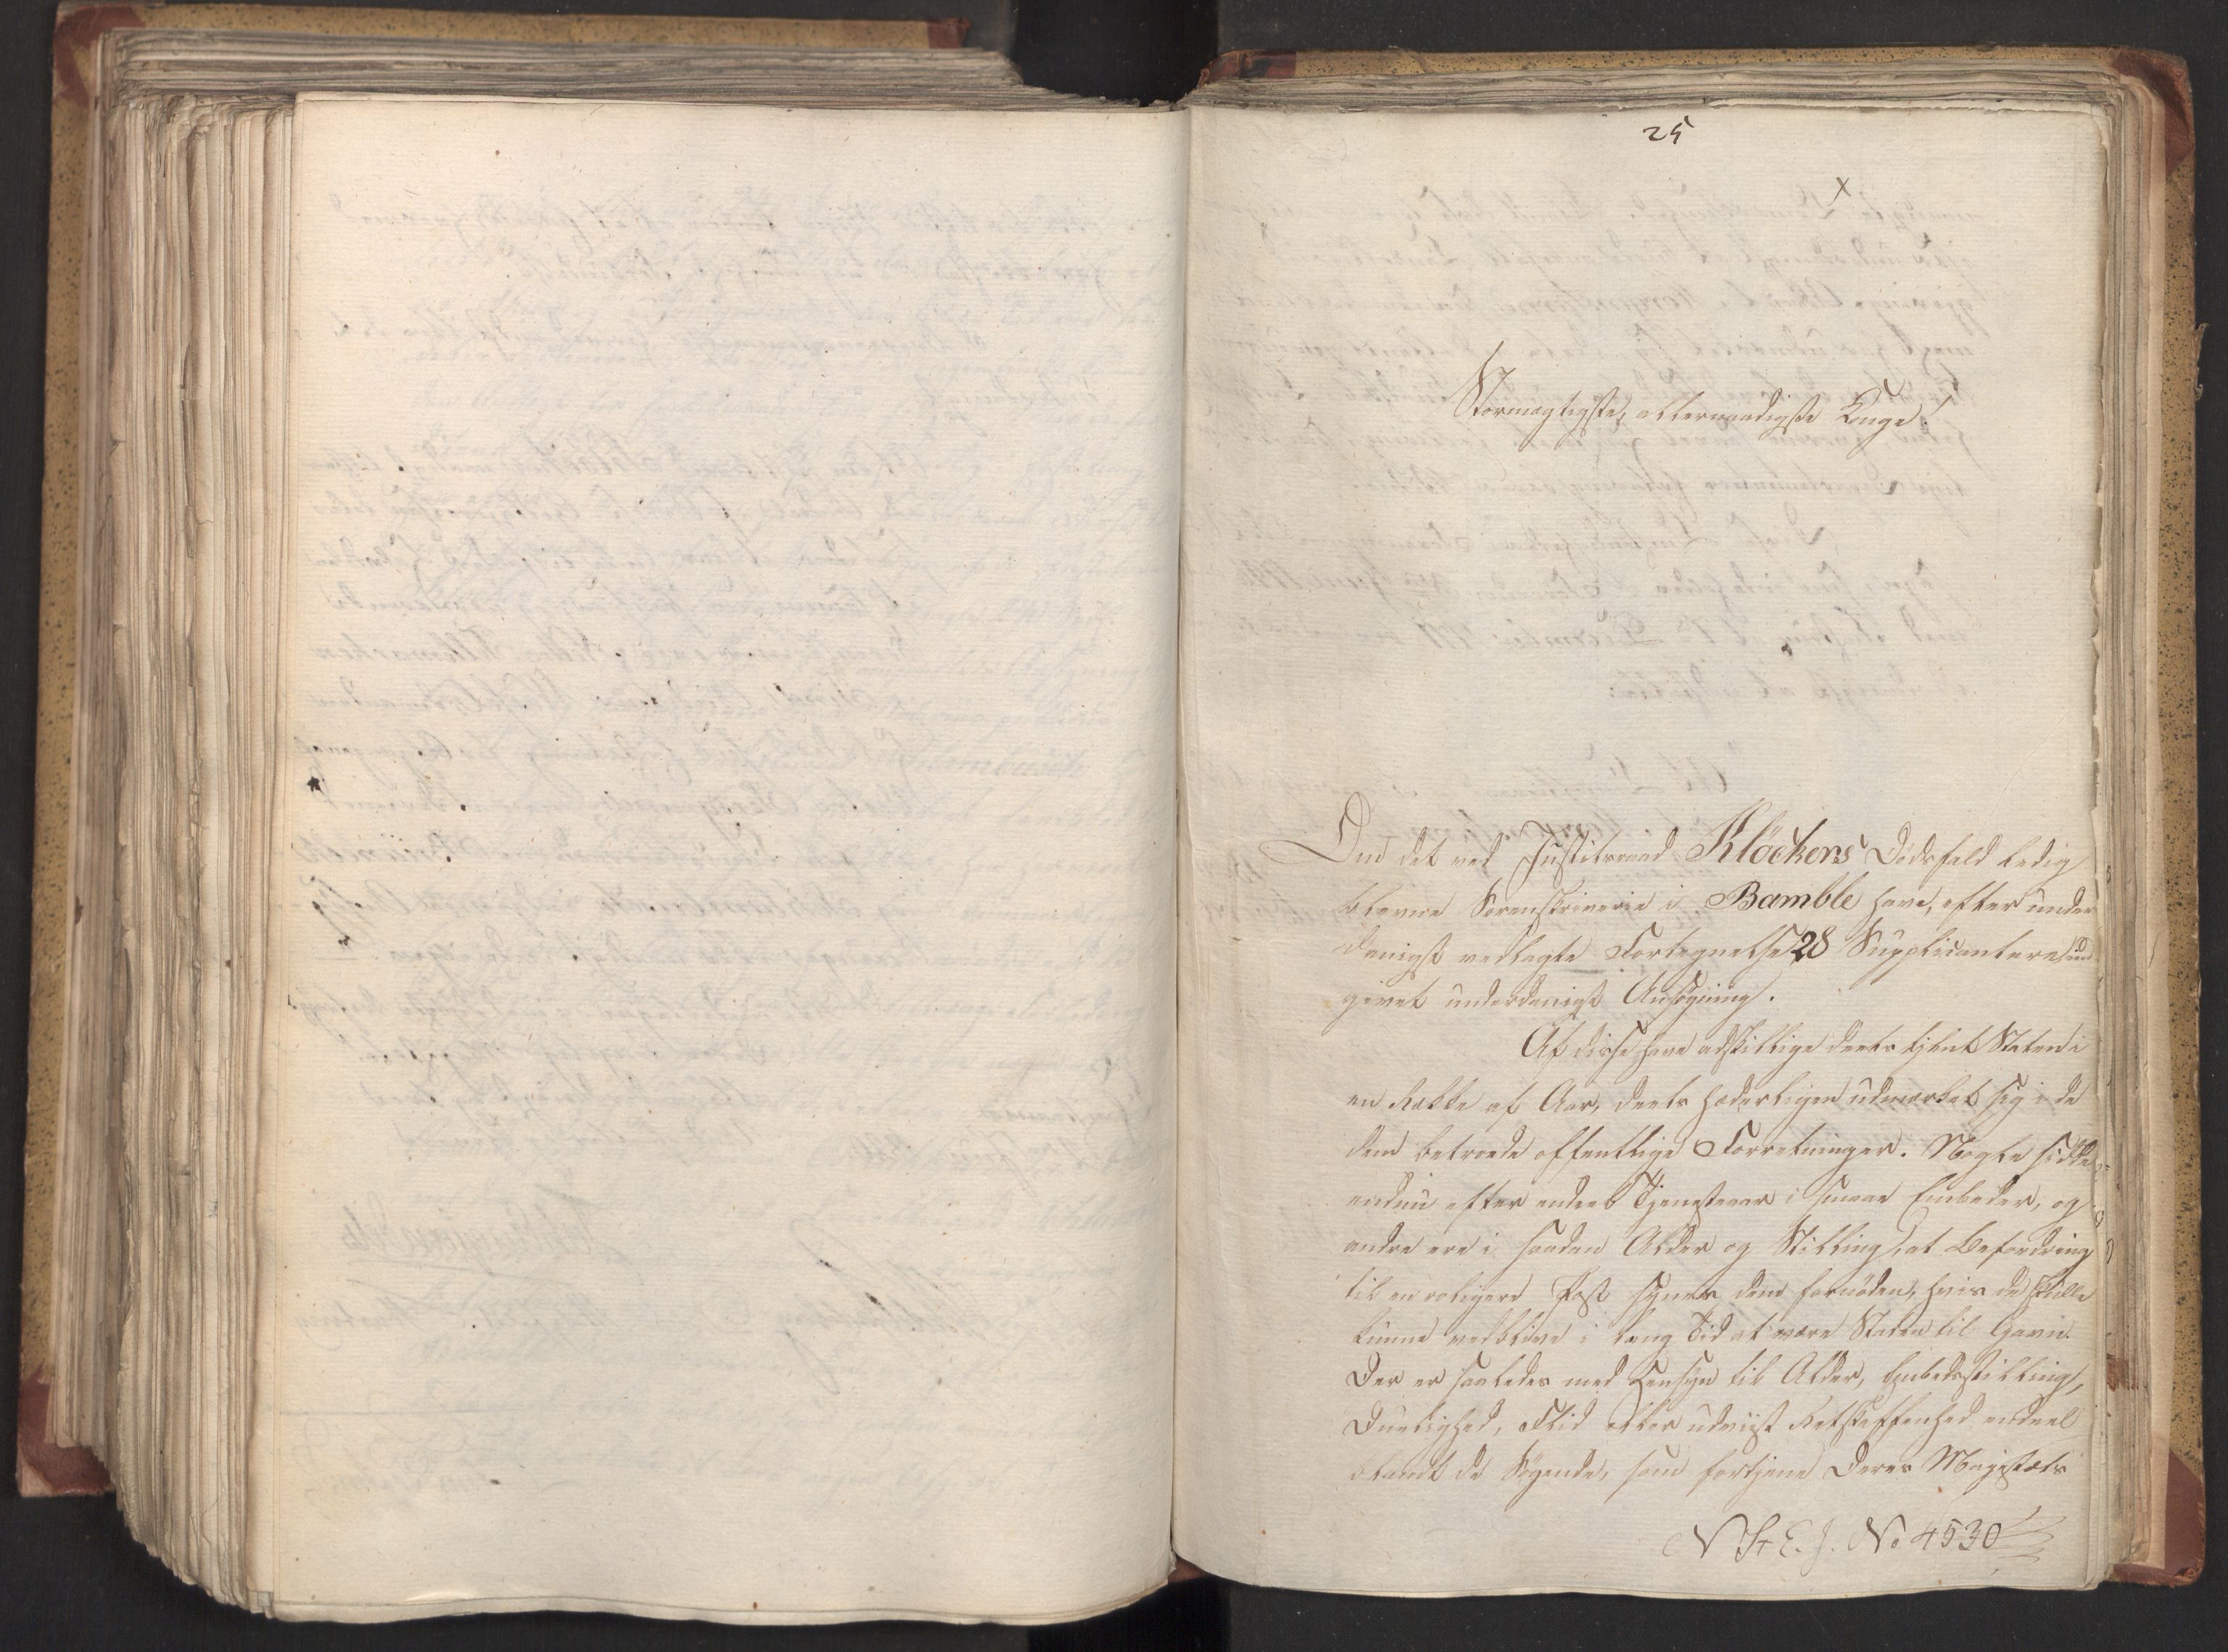 25
x
Stormægtigste, allernaadigste Konge!
Om det ved Justitsraad Klöckers Dødsfald ledig
blevne Sorenskriverie i Bamble have, efter under
danigst vedlagte Fortegnelse 28 Supplicantere ind
givet underdanigst Ansøgning.
Af disse have adskillige deels tjent Staten i
en Række af Aar, deels hæderligen udmærket sig i de
dem betroede offentlige Forretninger. Nogle sidde
endnu efter endeel Tjenesteaar i smaae Embeder, og
andre ere i saadan Alder og Stilling, at Befordring
til en roligere Post synes dem fornöden, hvis de skulle
kunne vedblive i lang Tid at være Staten til Gavn.
Der er saaledes med Hensyn til Alder, Embedsstilling,
Duelighed, Flid eller udviist Retskaffenhed endeel
blandt de Søgende, som fortjene Deres Majestæts
N St. E. J. No 4530